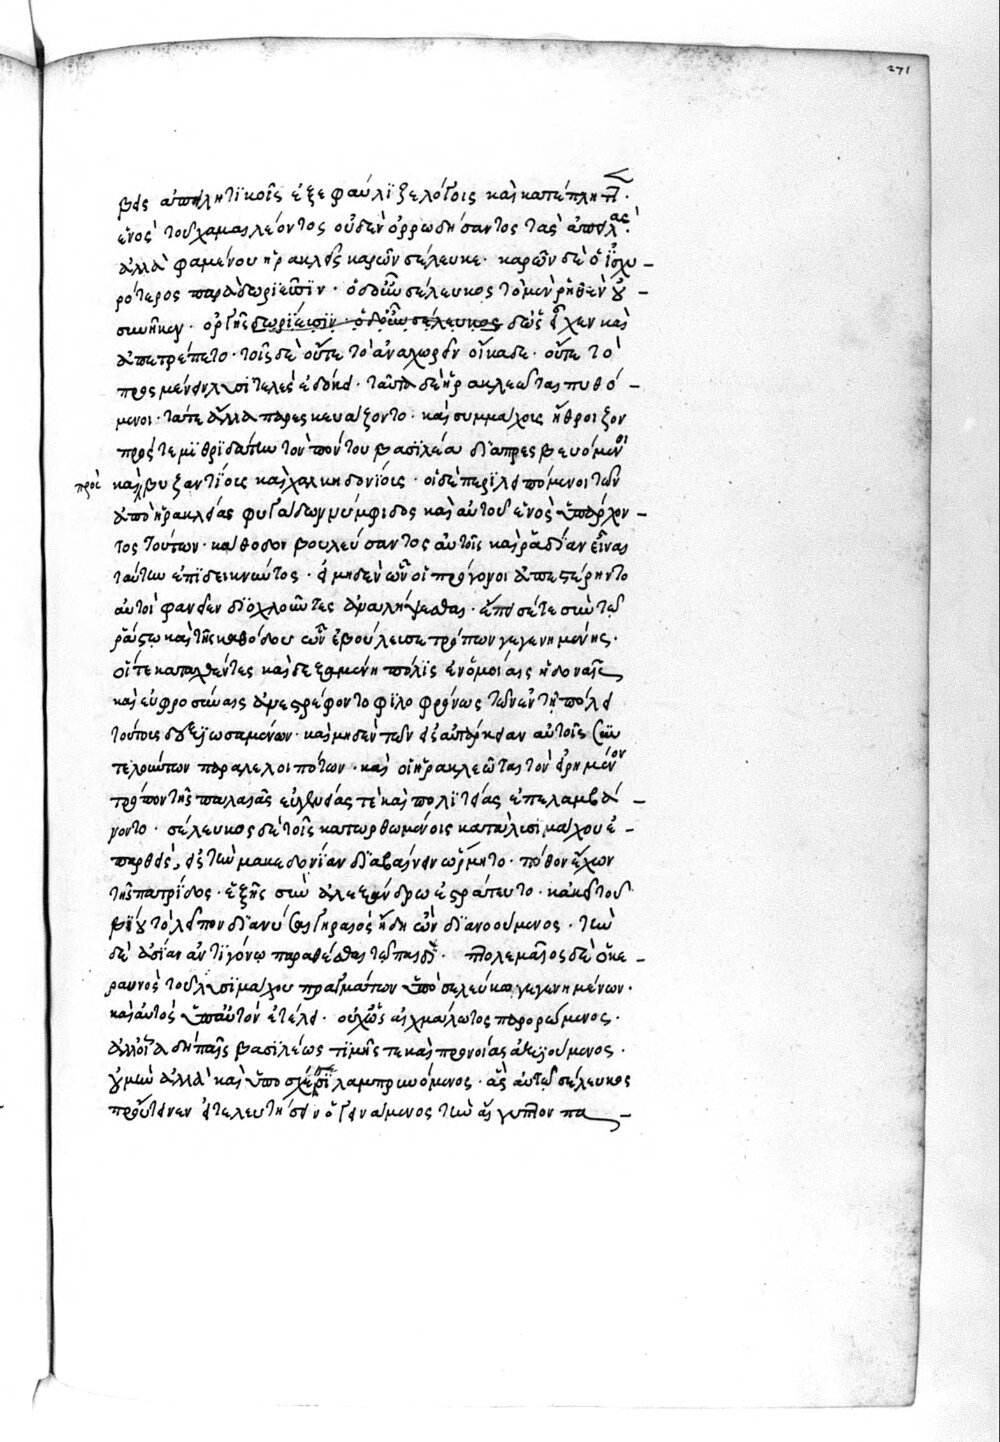 βεις ἀπειλητικοῖς ἐξεφαύλιζε λόγοις καὶ κατέπληττ.
ἑνὸς τοῦ χαμαιλέοντος οὐδὲν ὀρρωδήσαντος τὰς ἀπειλάς.
ἀλλὰ φαμένου ἡρακλῆς καρῶν σέλευκε· καρῶν δὲ ὁ ἰσχυ–
ρότερος παρὰ δωριεῦσιν· ὁ δ' οὖν σέλευκος τὸ μὲν ῥηθὲν οὐ –
συνῆκεν· ὀργῆς δωριεῦσιν· ὁ δ' οὖν σέλευκος δ' ὡς εἶχεν καὶ
ἀπετρέπετο· τοῖς δὲ οὔτε τὸ ἀναχωρεῖν οἴκαδε· οὔτε τὸ
προσμένειν λυσιτελὲς ἐδόκει· ταῦτα δὲ ἡρακλεῶται πυθό–
μενοι· τά τε ἄλλα παρεσκευάζοντο· καὶ συμμάχοις ἤθροιζον
πρός τε μιθριδάτην τὸν πόντου βασιλέα διαπρεσβευόμενοι
προὶ καὶ βυζαντίοις καὶ χαλκηδονίοις· οἱ δὲ περιλειπόμενοι τῶν
ἀπὸ ἡρακλείας φυγάδων νύμφιδος καὶ αὐτοῦ ἑνὸς ὑπάρχον–
τος τούτων· κάθοδον βουλεύσαντος αὐτοῖς καὶ ῥᾳδίαν εἶναι
ταύτην ἐπιδεικνύντος· εἰ μηδὲν ὧν οἱ πρόγονοι ἀπεστέρηντο
αὐτοὶ φανεῖεν διοχλοῦντες ἀναλήψεσθαι· ἔπεισέ τε σὺν τῷ
ῥάστῳ καὶ τῆς καθόδου ὧν ἐβούλευσε τρόπων γεγενημένης·
οἵ τε καταχθέντες καὶ δεξαμένη πόλις ἐν ὁμοίαις ἡδοναῖς
καὶ εὐφροσύναις ἀνεστρέφοντο φιλοφρόνως τῶν ἐν τῇ πόλει
τούτοις δεξιωσαμένων· καὶ μηδὲν τῶν εἰς αὐτάρκειαν αὐτοῖς συν
τελούντων παραλελοιπότων· καὶ οἱ ἡρακλεῶται τὸν εἰρημένον
τρόπον τῆς παλαιᾶς εὐγενείας τὲ καὶ πολιτείας ἐπελαμβά–
νοντο· σέλευκος δὲ τοῖς κατωρθωμένοις κατὰ λυσιμάχου ἐ–
παρθεὶς, εἰς τὴν μακεδονίαν διαβαίνειν ὥρμητο· πόθον ἔχων
τῆς πατρίδος· ἐξ ἧς σὺν ἀλεξάνδρω ἐστράτευτο· κἀκεῖ τοῦ
βίου τὸ λεῖπον διανύσαι γηραιὸς ἤδη ὢν διανοούμενος· τὴν
δὲ ἀσίαν ἀντιγόνῳ παραθέσθαι τῷ παιδί· πτολεμαῖος δὲ ὁ κε–
ραυνὸς τοῦ λυσιμάχου πραγμάτων ὑπὸ σελεύκω γεγενημένων·
καὶ αὐτὸς ὑπ' αὐτὸν ἐτέλει· οὐχ ὡς αἰχμάλωτος παρορώμενος·
ἀλλ' οἷα δὴ παῖς βασιλέως τιμῆς τε καὶ προνοίας ἀξιούμενος·
οὐ μὴν ἀλλὰ καὶ ὑποσχέσεσι λαμπρυνόμενος· ἃς αὐτῷ σέλευκος
προὔτεινεν εἰ τελευτήσειεν ὁ γεινάμενος τὴν αἴγυπτον πα–
271